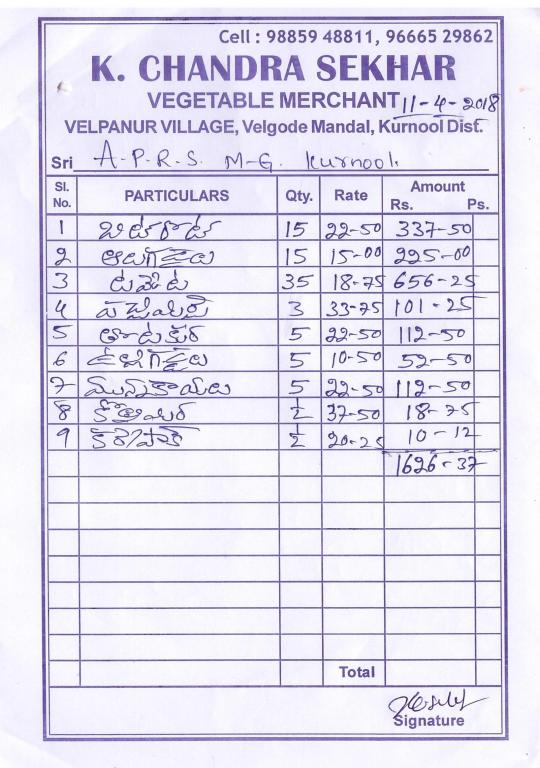 Cell : 98859 48811, 96665 29862
K. CHANDRA SEKHAR
VEGETABLE MERCHANT 11-4-2018
VELPANUR VILLAGE, Velgode Mandal, Kurnool Dist.
Sri A.P.R.S. M-G. Kurnool.
Sl. No. PARTICULARS Qty. Rate Amount Rs. Ps.
1 బీట్రూట్ 15 22-50 337-50
2 ఆలుగడ్డలు 15 15-00 225-00
3 టమేట 35 18-75 656-25
4 పచ్చిమిర్చి 3 33-75 101-25
5 తోటకూర 5 22-50 112-50
6 ఉల్లిగడ్డలు 5 10-50 52-50
7 మున్నకాయలు 5 22-50 112-50
8 కొత్తిమీర ½ 37-50 18-75
9 కరేపాక్ ½ 20-25 10-12
1626-37
Total
Signature